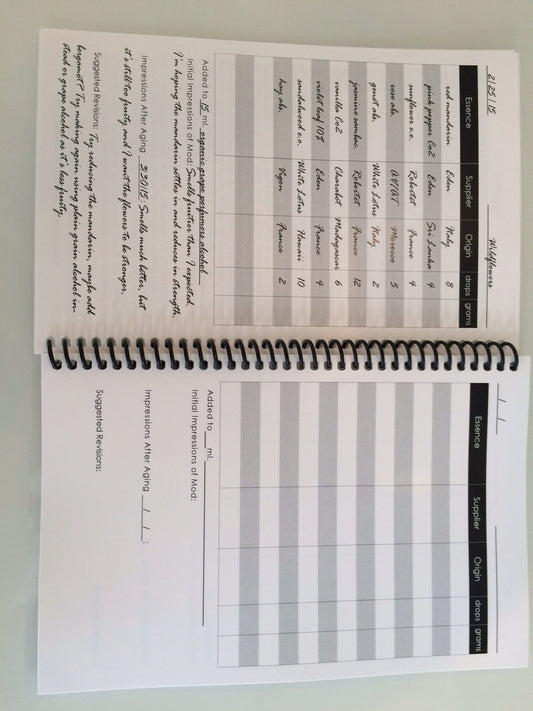 2/25/15 Wildflowers
Essence Supplier Origin drops grams
red mandarin Eden Italy 8
pink pepper Co2 Eden Sri Lanka 4
sunflower e.o. Robertet France 4
rose ab. Morocco 5
genet ab. White Lotus Italy 2
jasmine sambac, Robertet France 12
vanilla Co2 Charabot Madagascar 6
violet leaf 10% Eden France 4
sandalwood e.o. White Lotus Hawaii 10
hay ab. Vigon France 2
Added to 15 ml. organic grape perfumers alcohol
Initial Impressions of Mod: Smells fruitier than I expected,
I'm hoping the mandarin settles in and reduces in strength.
Impressions After Aging 3/30/15: Smells much better, but
it's still too fruity and I want the flowers to be stronger,
Suggested Revisions: Try reducing the mandarin, maybe add
bergamot? Try making again using plain grain alcohol in-
stead or grape alcohol as it's less fruity.
/ /
Essence Supplier Origin drops grams
Added to ml.
Initial Impressions of Mod:
Impressions After Aging / / :
Suggested Revisions: